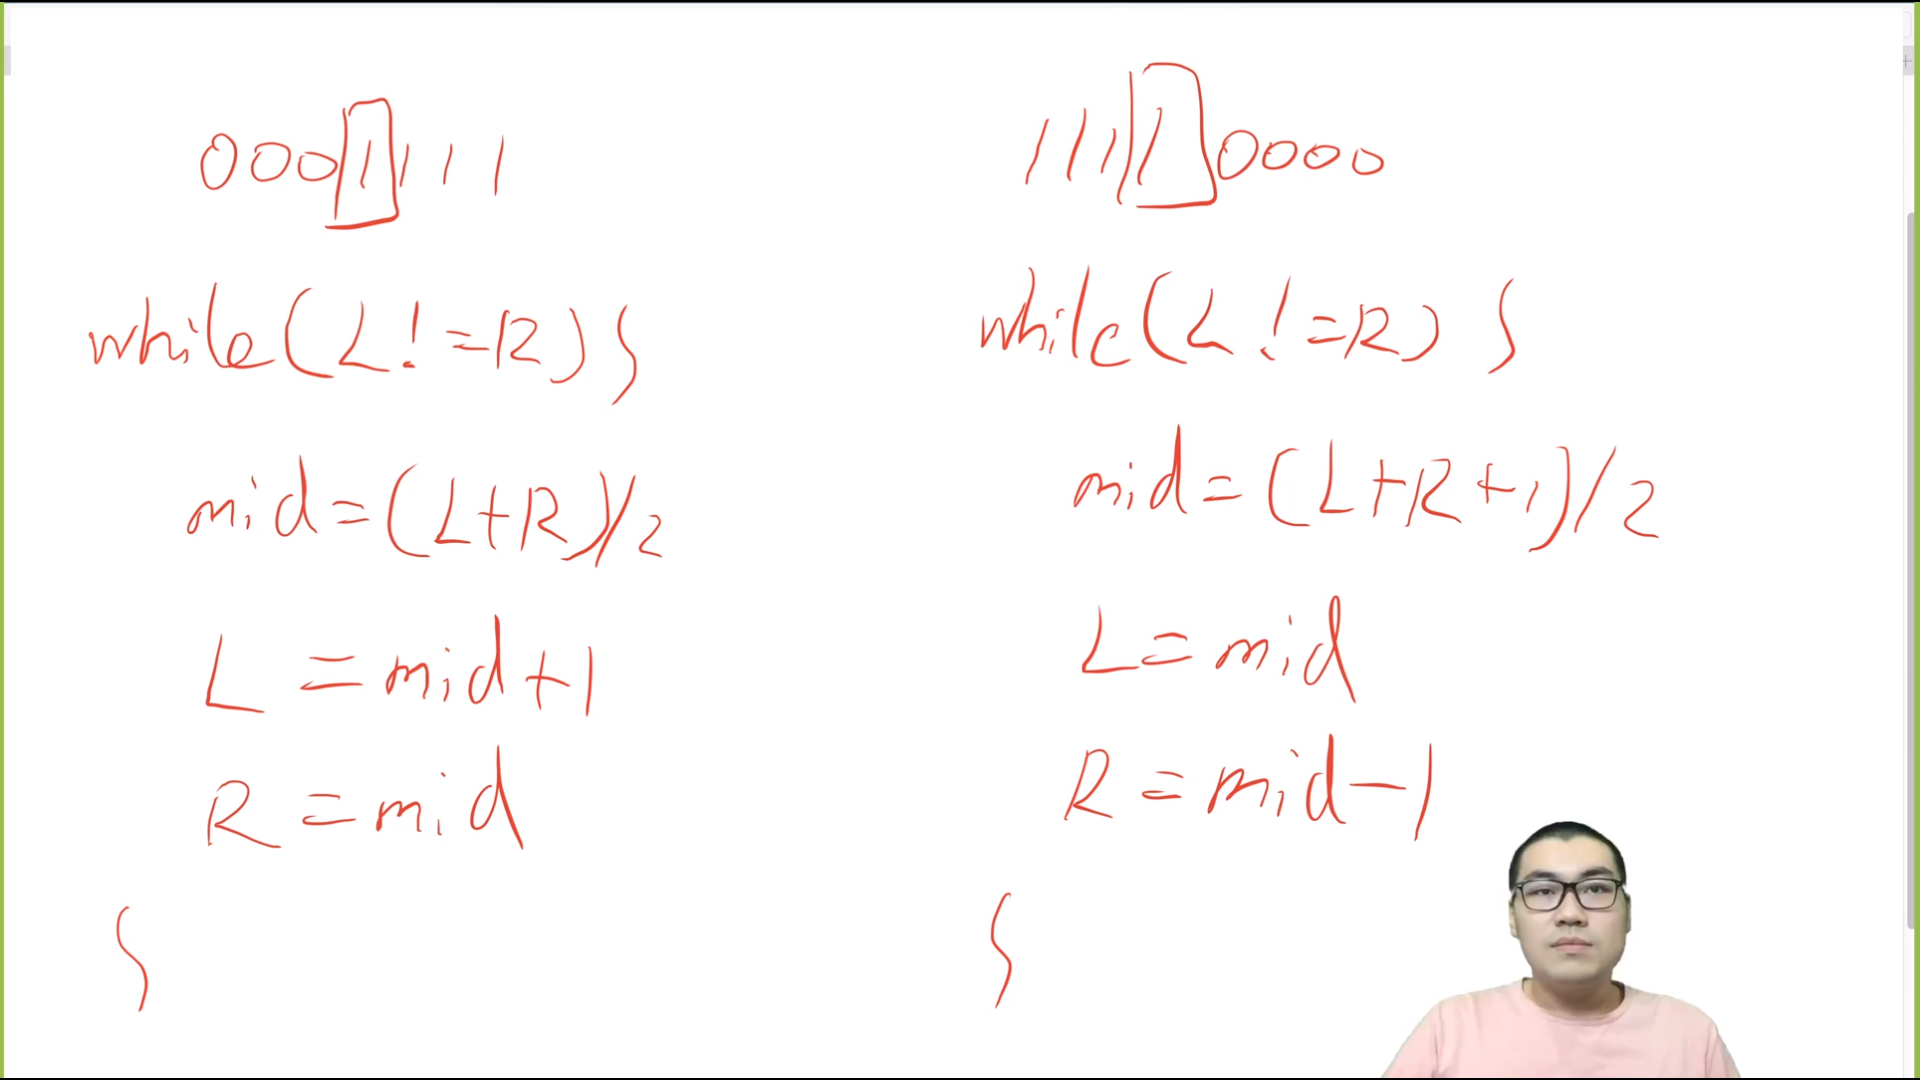 0001111
while(L!=R){
mid=(L+R)/2
L=mid+1
R=mid
}
111110000
while(L!=R){
mid=(L+R+1)/2
L=mid
R=mid-1
}